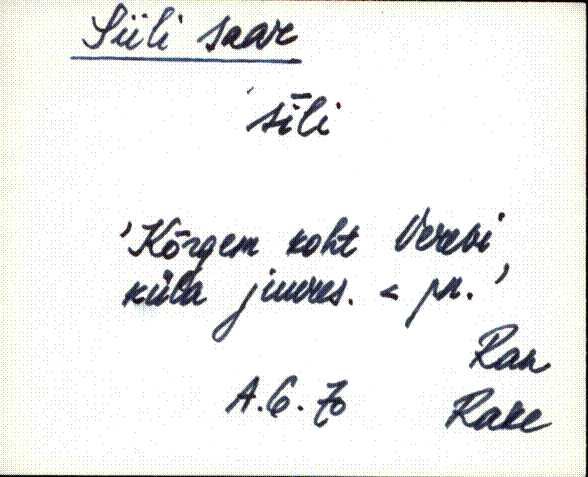 Siili saar
sīli
'Kõrgem koht Verevi
küla juures. < pn.'
Ran
A.G. 70 Rake